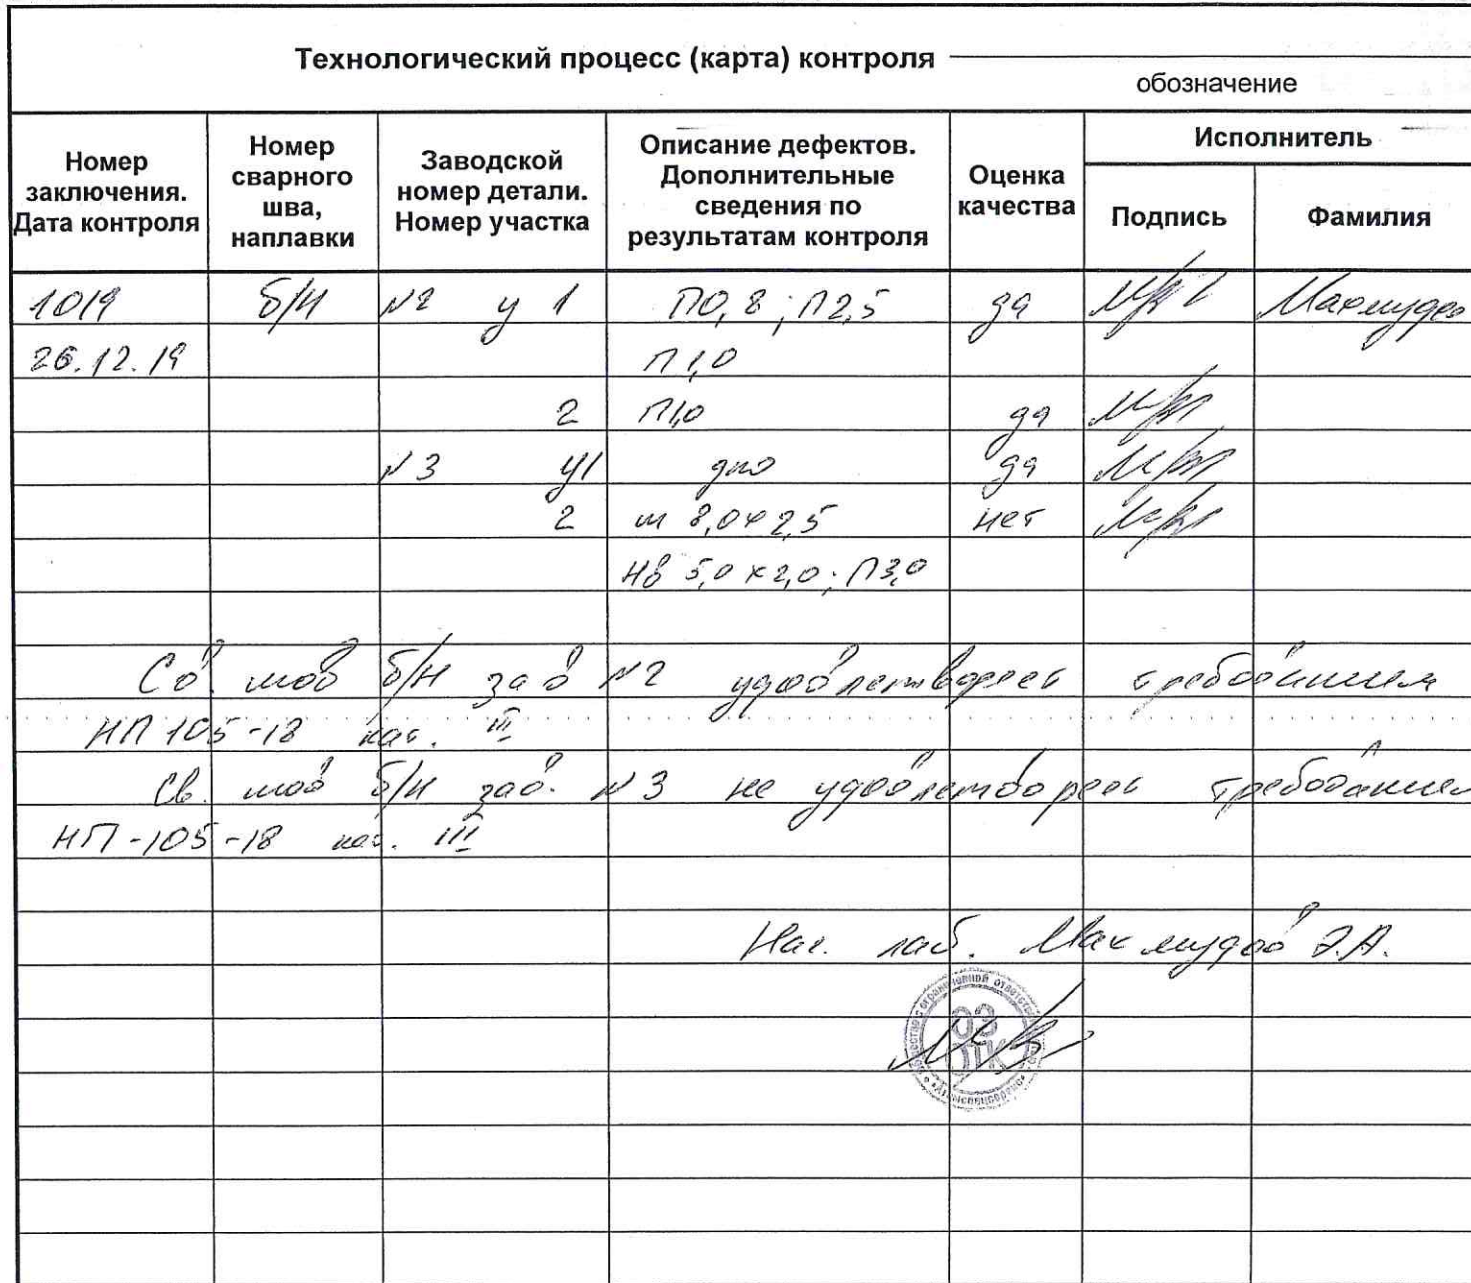 Технологический процесс (карта) контроля
обозначение
Номер заключения. Дата контроля
Номер сварного шва, наплавки
Заводской номер детали. Номер участка
Описание дефектов. Дополнительные сведения по результатам контроля
Оценка качества
Исполнитель
Подпись
Фамилия
1019 б/н №2 у 1 П0,8; П2,5 да Махмудов
26.12.19 П1,0
2 П1,0 да
№3 у1 дно да
2 ш 8,0х2,5 нет
Нв 5,0х2,0; П3,0
Св. шов б/н зав №2 удовлетворяет требованиям
НП 105-18 кат. III
Св. шов б/н зав. №3 не удовлетворяет требованиям
НП-105-18 кат. III
Нач. лаб. Махмудов Э.А.
03
ОТК